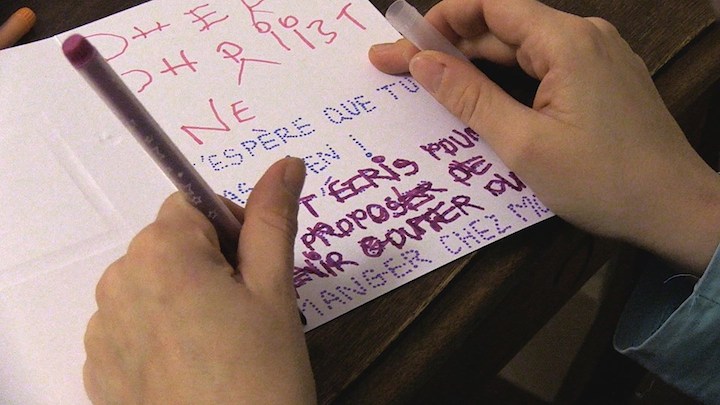 CHER
NE
'ESPÈRE QUE TU
EN !
T'ÉCRIS POUR
PROPOSER DE
ENIR GOUTER OU
MANGER CHEZ MO